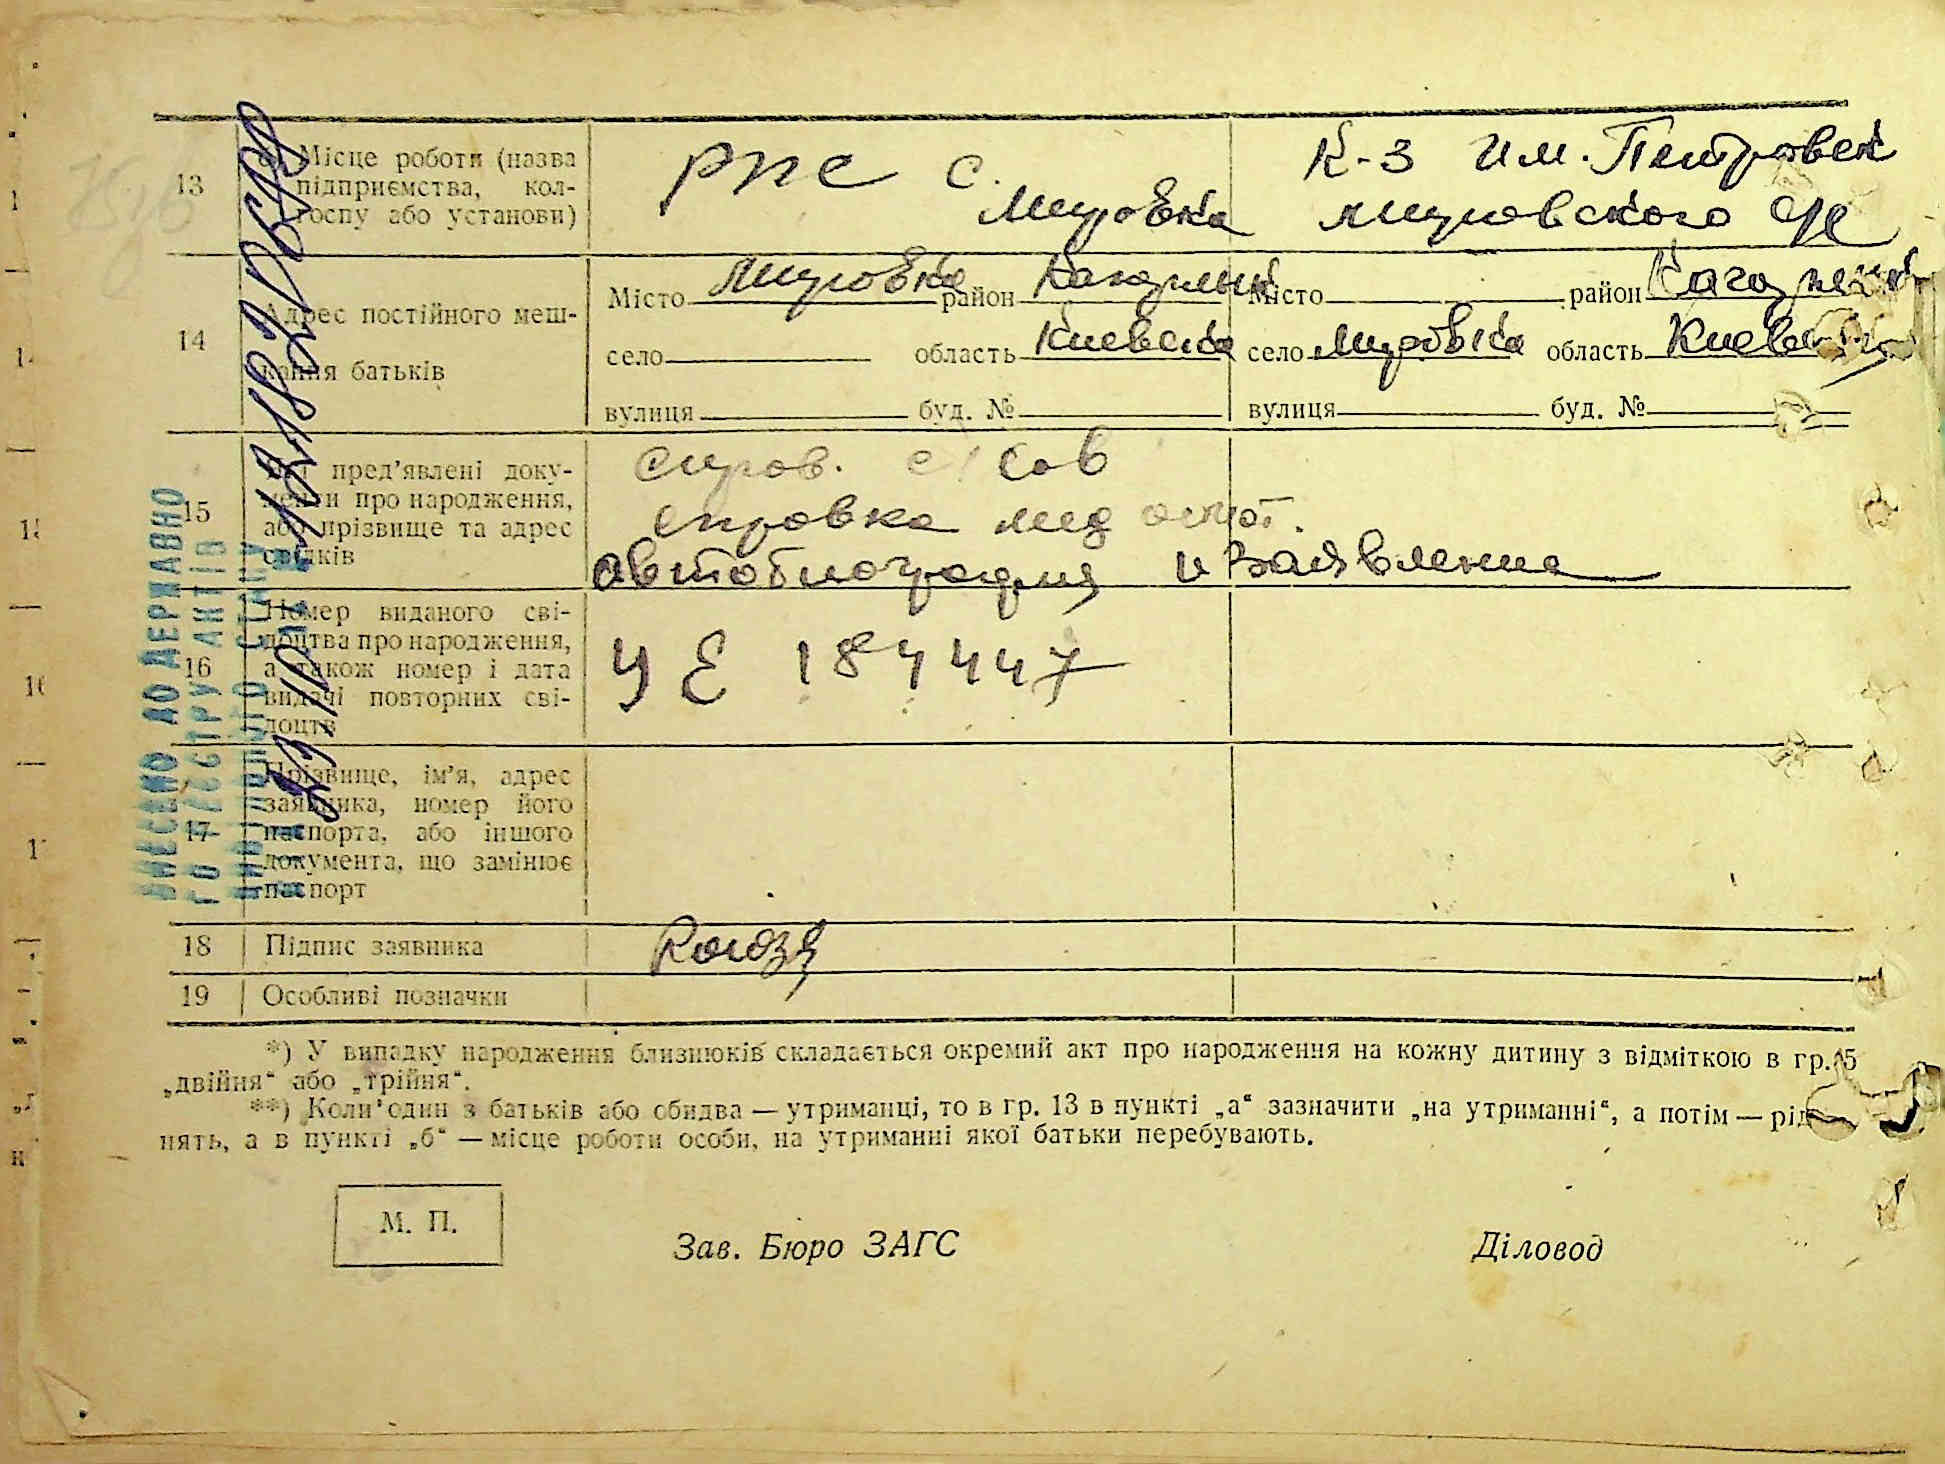 13 б) Місце роботи (назва
підприємства, кол-
госпу або установи)
РПС с.
Мировка
К-З Им. Петровск
мировского с/с
14 Адрес постійного меш-
кання батьків
Місто Мировка район Кагарлык
село область Киевска
вулиця буд. №
Місто район Кагарлык
село Мировка область Киевск
вулиця буд. №
15 Які пред'явлені доку-
менти про народження,
або прізвище та адрес
свідків
справ. с/сов
справка мед осмот.
автобиография и Заявление
16 Номер виданого сві-
доцтва про народження,
а також номер і дата
видачі повторних сві-
доцтв
УЕ 184447
17 Прізвище, ім'я, адрес
заявника, номер його
паспорта, або іншого
документа, що замінює
паспорт
18 Підпис заявника
19 Особливі позначки
ВНЕСЕНО ДО ДЕРЖАВНО
ГО РЕЄСТРУ АКТІВ
ЦИВІЛЬНОГО СТАНУ
*) У випадку народження близнюків складається окремий акт про народження на кожну дитину з відміткою в гр. 5
„двійня“ або „трійня“.
**) Коли один з батьків або обидва — утриманці, то в гр. 13 в пункті „а“ зазначити „на утриманні“, а потім — рід
нять, а в пункті „б“ — місце роботи особи, на утриманні якої батьки перебувають.
М. П.
Зав. Бюро ЗАГС
Діловод